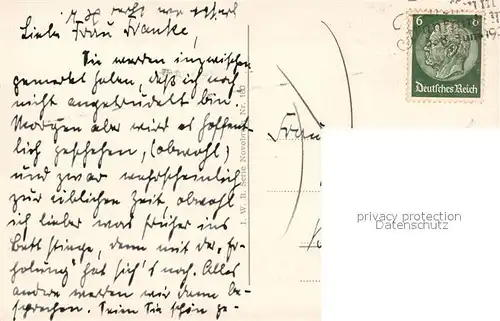 Liebe Frau Franke,
Sie werden inzwischen
gemerkt haben, daß ich noch
nicht angetrudelt bin.
Morgen aber wird es hoffent-
lich geschehen, (obwohl)
und zwar wahrscheinlich
zur üblichen Zeit obwohl
ich lieber was früher ins
Bett stiege, denn mit der „Er-
holung" hat sich's noch. Alles
andere werden wir dann be-
sprechen. Seien Sie schön ge-
I. W. B. Serie Novo Nr. 160
Frau
6
6
Deutsches Reich
privacy protection
Datenschutz